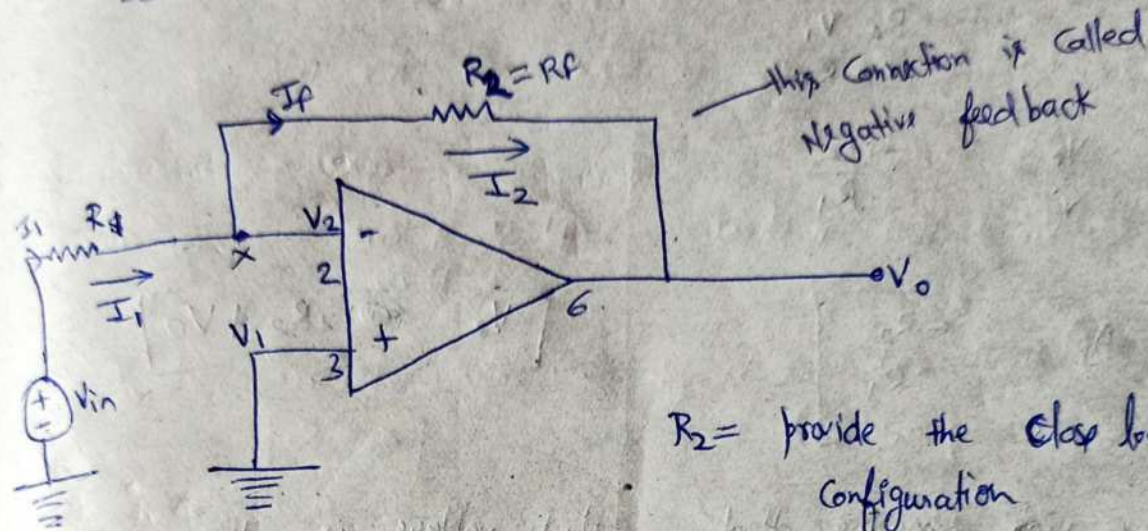 this Connection is called
Negative feedback
R2 = Rf
If
I2
I1
R1
I1
X
V2
-
2
V1
+
3
6
Vo
+
-
Vin
R2 = provide the Close
Configuration